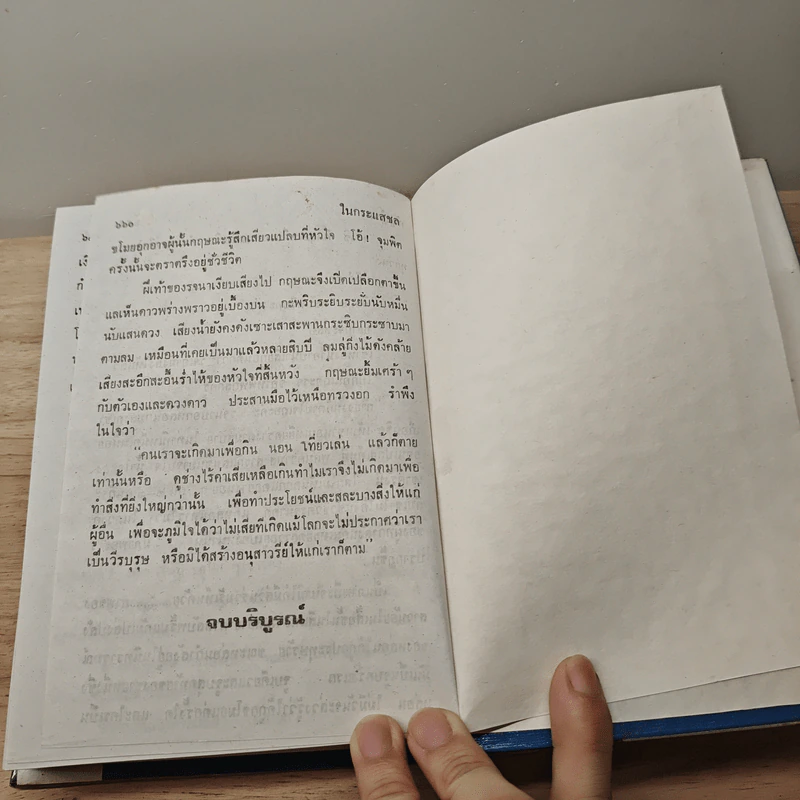 ๖๖๐
ในกระแสชล
ขโมยอุกอาจผู้นั้นกฤษณะรู้สึกเสียวแปลบที่หัวใจ โอ้! จุมพิต
ครั้งนั้นจะตราตรึงอยู่ชั่วชีวิต
ฝีเท้าของรจนาเงียบเสียงไป กฤษณะจึงเปิดเปลือกตาขึ้น
แลเห็นดาวพร่างพราวอยู่เบื้องบน กะพริบระยิบระยับนับหมื่น
นับแสนดวง เสียงน้ำยังคงดังเซาะเสาสะพานกระซิบกระซาบมา
ตามลม เหมือนที่เคยเป็นมาแล้วหลายสิบปี ลมลู่กิ่งไม้ดังคล้าย
เสียงสะอึกสะอื้นร่ำไห้ของหัวใจที่สิ้นหวัง กฤษณะยิ้มเศร้า ๆ
กับตัวเองและดวงดาว ประสานมือไว้เหนือทรวงอก รำพึง
ในใจว่า
“คนเราจะเกิดมาเพื่อกิน นอน เที่ยวเล่น แล้วก็ตาย
เท่านั้นหรือ ดูช่างไร้ค่าเสียเหลือเกินทำไมเราจึงไม่เกิดมาเพื่อ
ทำสิ่งที่ยิ่งใหญ่กว่านั้น เพื่อทำประโยชน์และสละบางสิ่งให้แก่
ผู้อื่น เพื่อจะภูมิใจได้ว่าไม่เสียทีเกิดแม้โลกจะไม่ประกาศว่าเรา
เป็นวีรบุรุษ หรือมิได้สร้างอนุสาวรีย์ให้แก่เราก็ตาม”
จบบริบูรณ์